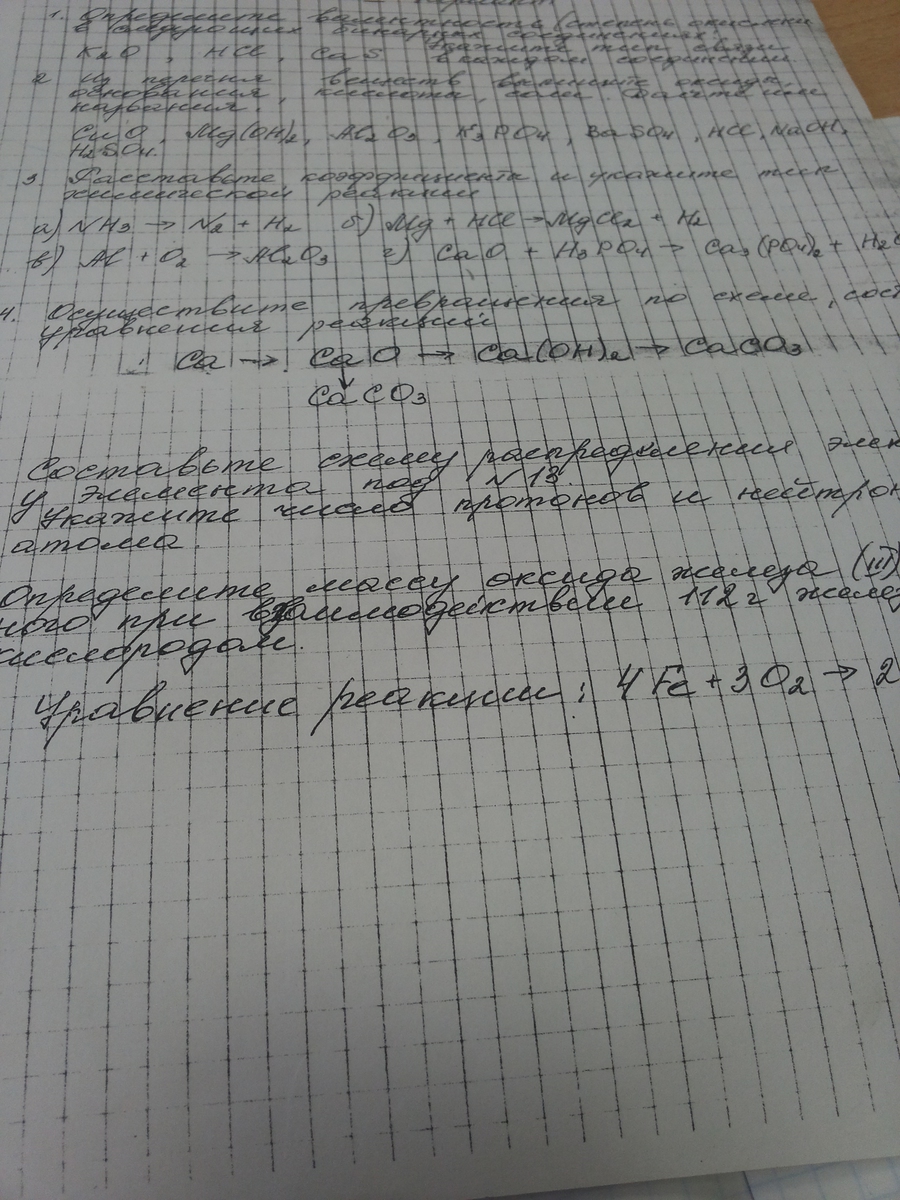 вариант
1. Определите валентность (степень окисления
в следующих бинарных соединениях,
K2O, HCl, CaS Укажите тип связи
в каждом соединении.
2 Из перечня веществ выпишите оксиды,
основания, кислоты, соли. Дайте им
названия.
CuO, Mg(OH)2, Al2O3, K3PO4, BaSO4, HCl, NaOH,
H2SO4.
3 Расставьте коэффициенты и укажите тип
химической реакции
а) NH3 → N2 + H2 б) Mg + HCl → MgCl2 + H2
в) Al + O2 → Al2O3 г) CaO + H3PO4 → Ca3(PO4)2 + H2O
4. Осуществите превращения по схеме, сост
уравнения реакций
Ca → CaO → Ca(OH)2 → CaCO3
↓
CaCO3
Составьте схему распределения элек
у элемента под N 13.
Укажите число протонов и нейтрон
атома.
Определите массу оксида железа (III)
ного при взаимодействии 112 г желез
кислородом.
Уравнение реакции: 4Fe + 3O2 → 2